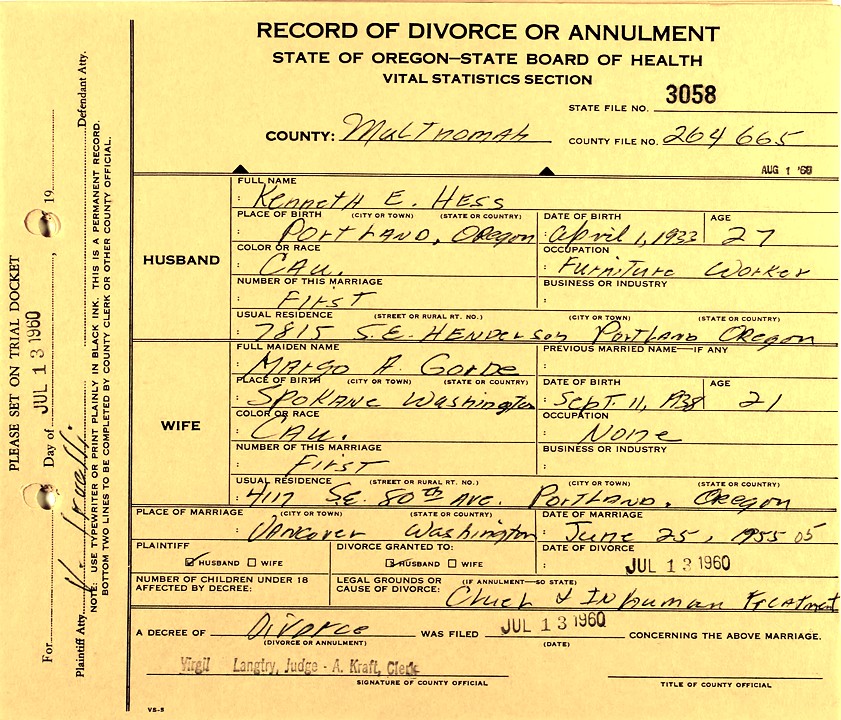 RECORD OF DIVORCE OR ANNULMENT
STATE OF OREGON—STATE BOARD OF HEALTH
VITAL STATISTICS SECTION
STATE FILE NO. 3058
COUNTY: Multnomah COUNTY FILE NO. 264 665
AUG 1 '60
HUSBAND
FULL NAME
: Kenneth E. Hess
PLACE OF BIRTH (CITY OR TOWN) (STATE OR COUNTRY) DATE OF BIRTH AGE
: Portland, Oregon : April 1, 1933 27
COLOR OR RACE OCCUPATION
: Cau. : Furniture Worker
NUMBER OF THIS MARRIAGE BUSINESS OR INDUSTRY
: First :
USUAL RESIDENCE (STREET OR RURAL RT. NO.) (CITY OR TOWN) (STATE OR COUNTRY)
: 7815 S.E. Henderson Portland Oregon
WIFE
FULL MAIDEN NAME PREVIOUS MARRIED NAME—IF ANY
: Margo A. Gorde :
PLACE OF BIRTH (CITY OR TOWN) (STATE OR COUNTRY) DATE OF BIRTH AGE
: Spokane Washington : Sept. 11, 1938 21
COLOR OR RACE OCCUPATION
: Cau. : None
NUMBER OF THIS MARRIAGE BUSINESS OR INDUSTRY
: First :
USUAL RESIDENCE (STREET OR RURAL RT. NO.) (CITY OR TOWN) (STATE OR COUNTRY)
: 4117 S.E. 80th Ave. Portland, Oregon
PLACE OF MARRIAGE (CITY OR TOWN) (STATE OR COUNTRY) DATE OF MARRIAGE
: Vancover Washington : June 25, 1955 05
PLAINTIFF DIVORCE GRANTED TO: DATE OF DIVORCE
☑ HUSBAND ☐ WIFE ☑ HUSBAND ☐ WIFE JUL 13 1960
NUMBER OF CHILDREN UNDER 18 LEGAL GROUNDS OR (IF ANNULMENT—SO STATE)
AFFECTED BY DECREE: CAUSE OF DIVORCE: Cruel & Inhuman Treatment
A DECREE OF Divorce WAS FILED JUL 13 1960 CONCERNING THE ABOVE MARRIAGE.
(DIVORCE OR ANNULMENT) (DATE)
Virgil Langtry, Judge - A. Kraft, Clerk
SIGNATURE OF COUNTY OFFICIAL TITLE OF COUNTY OFFICIAL
VS-5
PLEASE SET ON TRIAL DOCKET
For Day of JUL 13 1960, 19
Plaintiff Atty. Defendant Atty.
NOTE: USE TYPEWRITER OR PRINT PLAINLY IN BLACK INK. THIS IS A PERMANENT RECORD.
BOTTOM TWO LINES TO BE COMPLETED BY COUNTY CLERK OR OTHER COUNTY OFFICIAL.